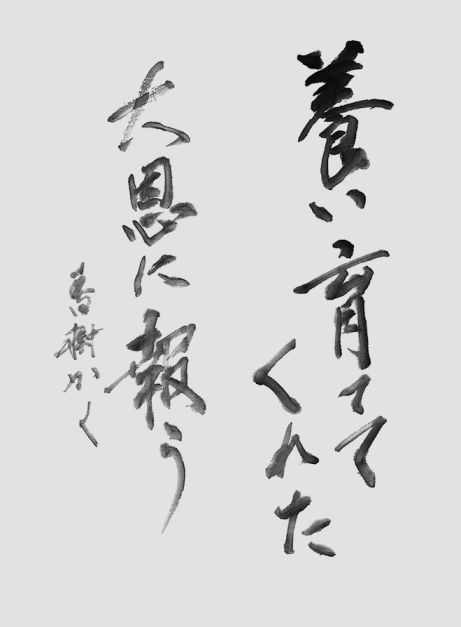 養い育てて
くれた
大恩に報う
善樹かく